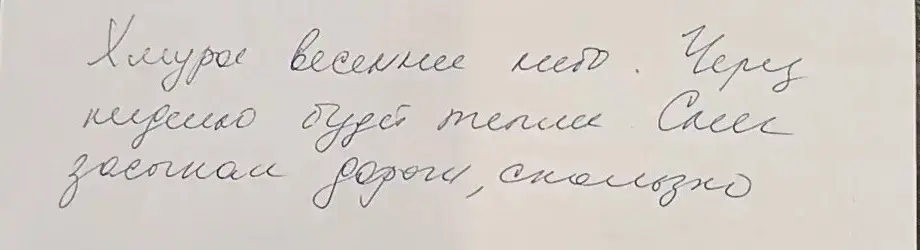 Хмурое весеннее небо. Через
неделю будет теплее Снег
засыпал дороги, скользко